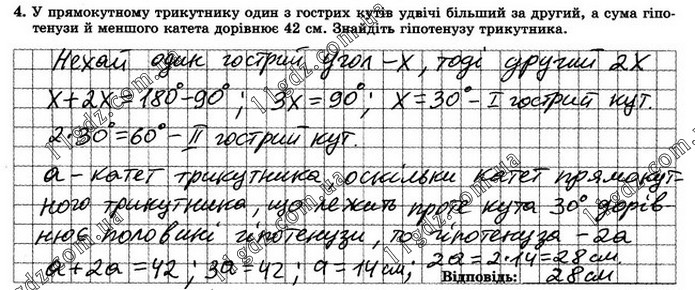 4. У прямокутному трикутнику один з гострих кутів удвічі більший за другий, а сума гіпо-
тенузи й меншого катета дорівнює 42 см. Знайдіть гіпотенузу трикутника.
Нехай один гострий угол - x, тоді другий 2x
x+2x=180°-90°; 3x=90°; x=30° - I гострий кут.
2·30°=60° - II гострий кут.
a - катет трикутника, оскільки катет прямокут-
ного трикутника, що лежить проти кута 30° дорів-
нює половині гіпотенузи, то гіпотенуза - 2a
a+2a=42; 3a=42; a=14см; 2a=2·14=28см.
Відповідь: 28см.
11gdz.com.ua